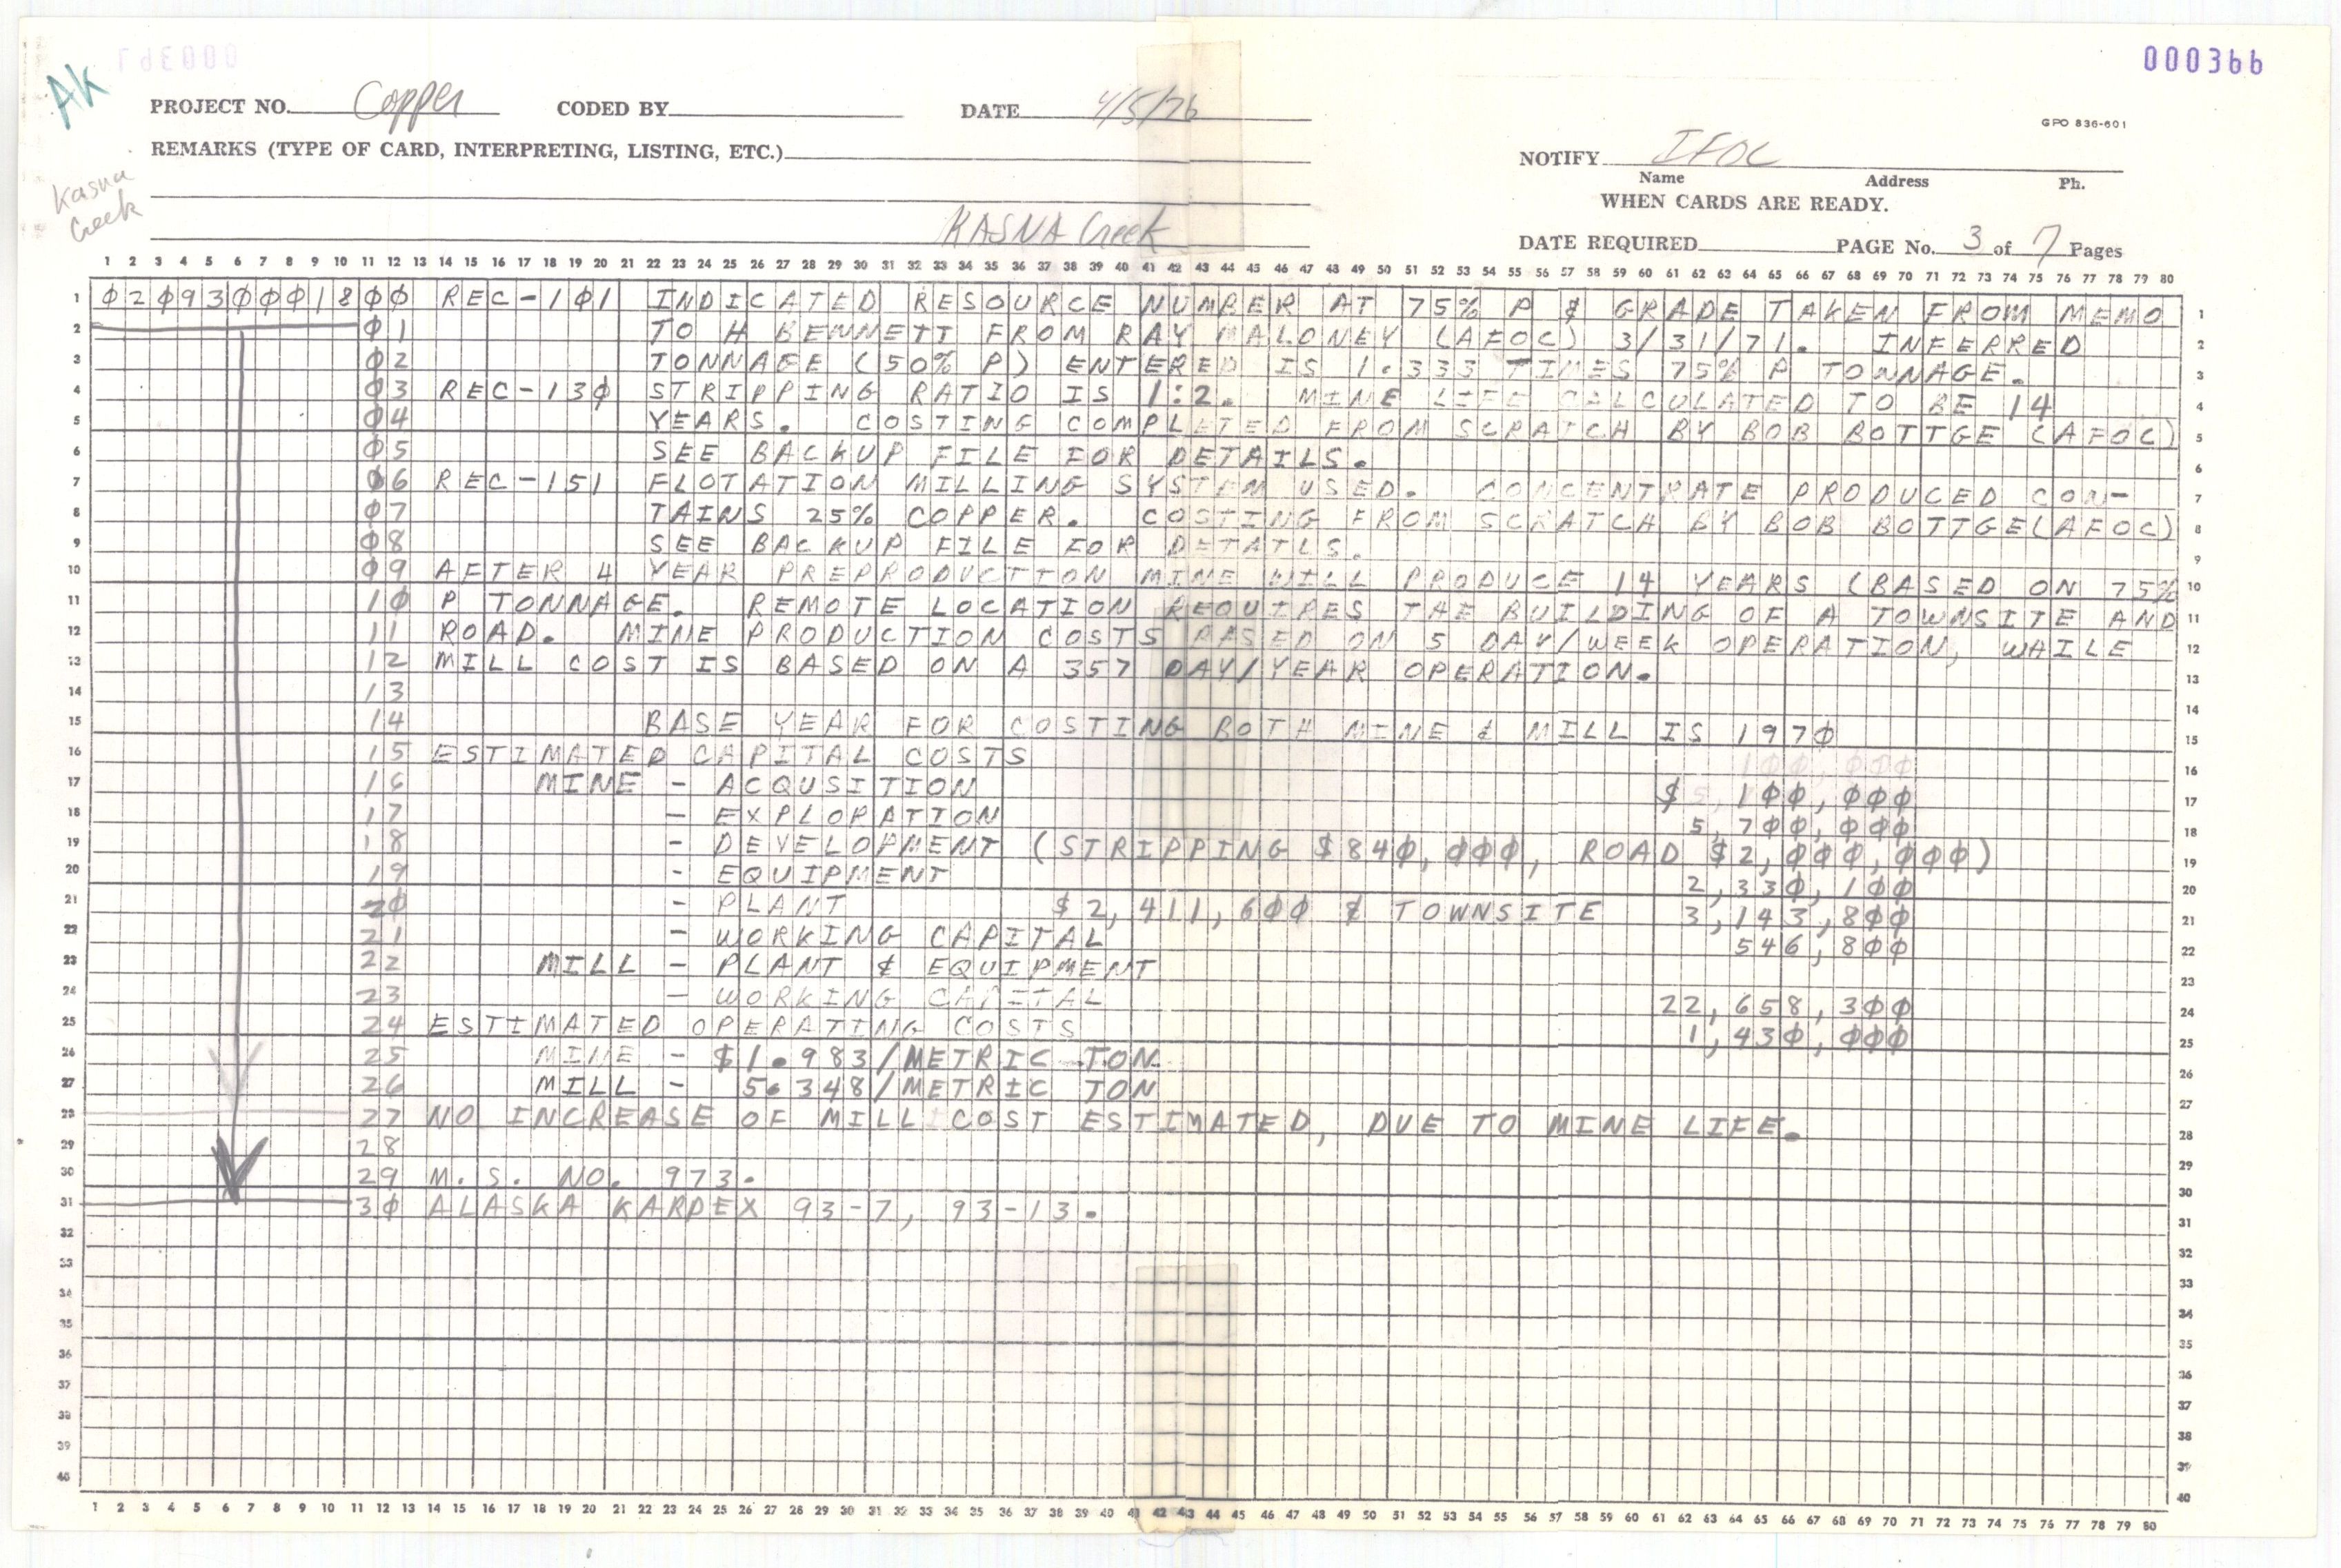 000366
AK
PROJECT NO. Copper CODED BY DATE 4/5/76
GPO 836-601
REMARKS (TYPE OF CARD, INTERPRETING, LISTING, ETC.)
NOTIFY IFOC
Name Address Ph.
WHEN CARDS ARE READY.
Kasna
Creek
KASNA Creek
DATE REQUIRED PAGE No. 3 of 7 Pages
1 2 3 4 5 6 7 8 9 10 11 12 13 14 15 16 17 18 19 20 21 22 23 24 25 26 27 28 29 30 31 32 33 34 35 36 37 38 39 40 41 42 43 44 45 46 47 48 49 50 51 52 53 54 55 56 57 58 59 60 61 62 63 64 65 66 67 68 69 70 71 72 73 74 75 76 77 78 79 80
1 0209300018 00 REC-101 INDICATED RESOURCE NUMBER AT 75% P & GRADE TAKEN FROM MEMO 1
2 01 TO H BENNETT FROM RAY MALONEY (AFOC) 3/31/71. INFERRED 2
3 02 TONNAGE (50% P) ENTERED IS 1.333 TIMES 75% P TONNAGE. 3
4 03 REC-130 STRIPPING RATIO IS 1:2. MINE LIFE CALCULATED TO BE 14 4
5 04 YEARS. COSTING COMPLETED FROM SCRATCH BY BOB BOTTGE (AFOC) 5
6 05 SEE BACKUP FILE FOR DETAILS. 6
7 06 REC-151 FLOTATION MILLING SYSTEM USED. CONCENTRATE PRODUCED CON- 7
8 07 TAINS 25% COPPER. COSTING FROM SCRATCH BY BOB BOTTGE(AFOC) 8
9 08 SEE BACKUP FILE FOR DETAILS. 9
10 09 AFTER 4 YEAR PREPRODUCTION MINE WILL PRODUCE 14 YEARS (BASED ON 75% 10
11 10 P TONNAGE. REMOTE LOCATION REQUIRES THE BUILDING OF A TOWNSITE AND 11
12 11 ROAD. MINE PRODUCTION COSTS BASED ON 5 DAY/WEEK OPERATION, WHILE 12
13 12 MILL COST IS BASED ON A 357 DAY/YEAR OPERATION. 13
14 13 14
15 14 BASE YEAR FOR COSTING BOTH MINE & MILL IS 1970 15
16 15 ESTIMATED CAPITAL COSTS 100,000 16
17 16 MINE - ACQUSITION $ 100,000 17
18 17 - EXPLORATION 5,700,000 18
19 18 - DEVELOPMENT (STRIPPING $840,000, ROAD $2,000,000) 19
20 19 - EQUIPMENT 2,330,100 20
21 20 - PLANT $2,411,600 & TOWNSITE 3,143,800 21
22 21 - WORKING CAPITAL 546,800 22
23 22 MILL - PLANT & EQUIPMENT 23
24 23 - WORKING CAPITAL 22,658,300 24
25 24 ESTIMATED OPERATING COSTS 1,430,000 25
26 25 MINE - $1.983/METRIC TON 26
27 26 MILL - 5.348/METRIC TON 27
28 27 NO INCREASE OF MILL COST ESTIMATED, DUE TO MINE LIFE. 28
29 28 29
30 29 M.S. NO. 973. 30
31 30 ALASKA KARDEX 93-7, 93-13. 31
32 32
33 33
34 34
35 35
36 36
37 37
38 38
39 39
40 40
1 2 3 4 5 6 7 8 9 10 11 12 13 14 15 16 17 18 19 20 21 22 23 24 25 26 27 28 29 30 31 32 33 34 35 36 37 38 39 40 41 42 43 44 45 46 47 48 49 50 51 52 53 54 55 56 57 58 59 60 61 62 63 64 65 66 67 68 69 70 71 72 73 74 75 76 77 78 79 80